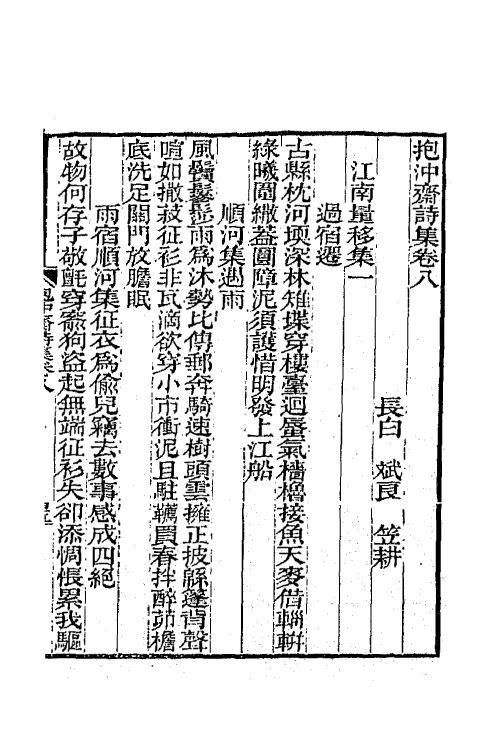 抱沖齋詩集卷八
長白 斌良 笠耕
江南量移集一
過宿遷
古縣枕河堧深林雉堞穿樓臺迥蜃氣檣櫓接魚天麥借輧
綠曦圓繖蓋圓障泥須護惜明發上江船
順河集遇雨
風鬟鬖髿雨為沐勢比傳郵奔騎速樹頭雲擁正披緜篷背聲
喧如撒菽征衫非瓦滴欲穿小市衝泥且駐韉買春拌醉茆檐
底洗足關門放膽眠
雨宿順河集征衣為偷兒竊去數事感成四絕
故物何存子敬氈穿窬狗盜起無端征衫失卻添惆悵累我驅
抱沖齋詩集卷八